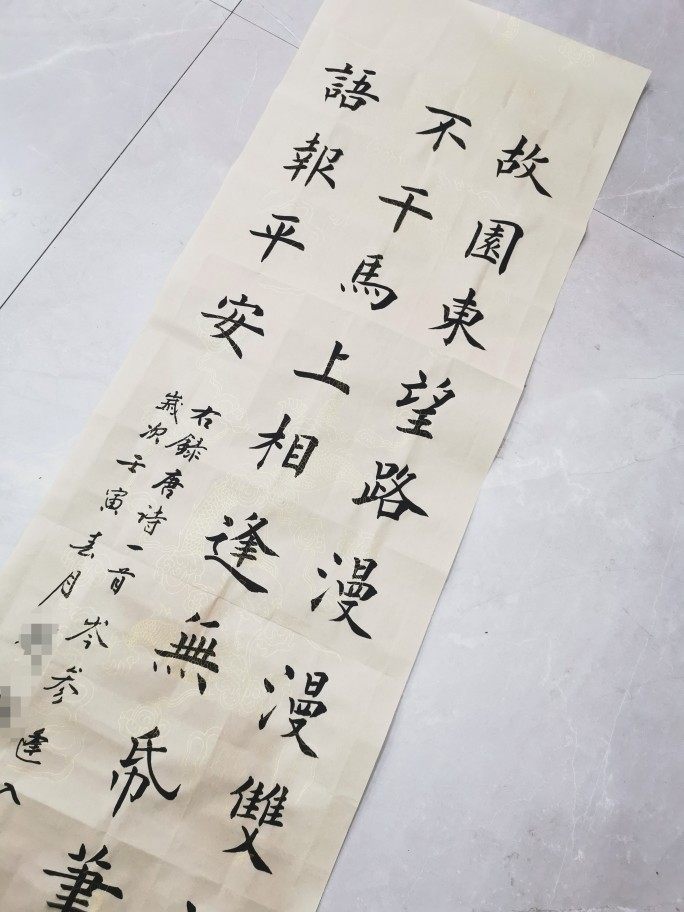 故園東望路漫漫雙
不干馬上相逢無帋筆
語報平安
右錄唐诗一首岑参逢入
歲次壬寅春月